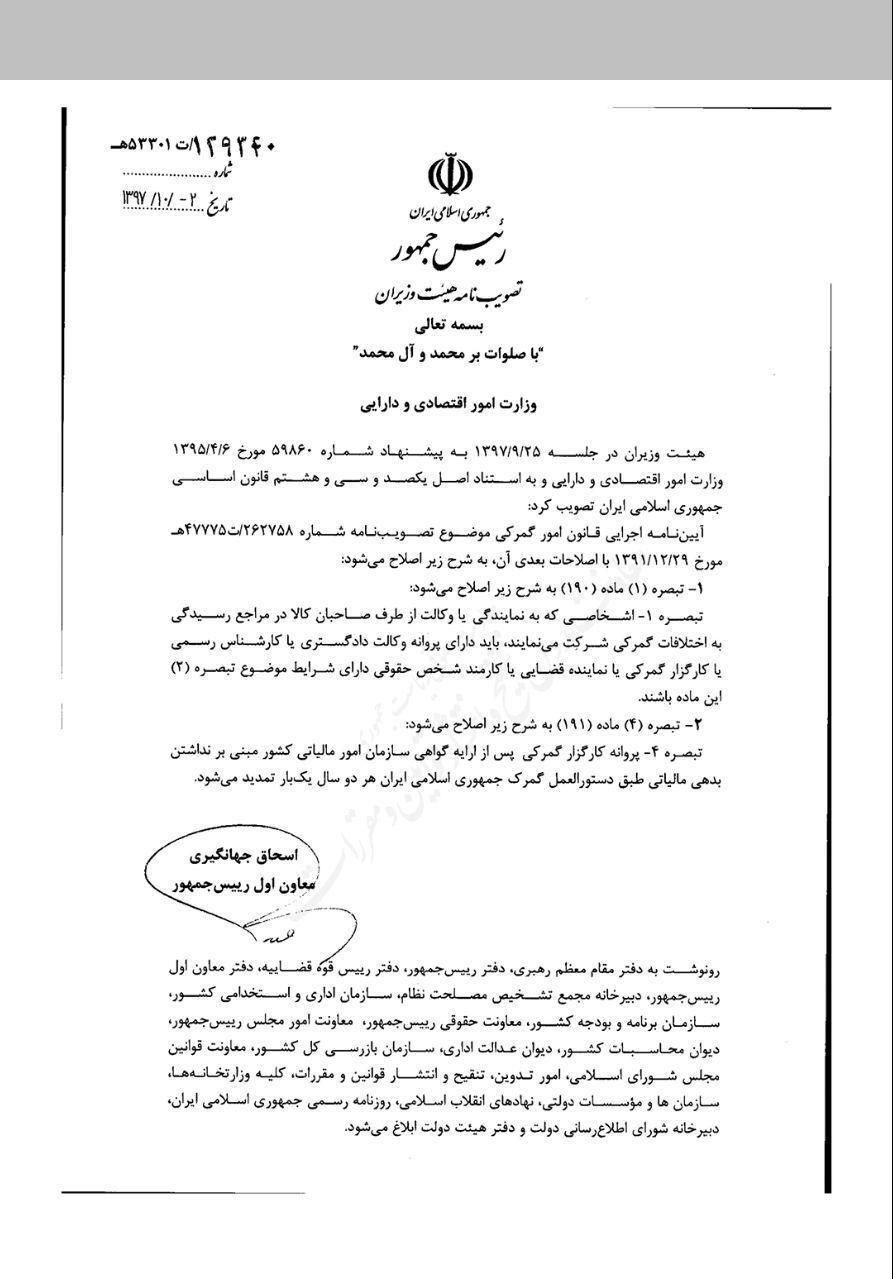 ۱۲۹۳۴۰/ت۵۳۳۰۱هـ
شماره
تاریخ ۱۳۹۷/۱۰/۰۲
جمهوری اسلامی ایران
رئیس جمهور
تصویب نامه هیئت وزیران
بسمه تعالی
"با صلوات بر محمد و آل محمد"
وزارت امور اقتصادی و دارایی
هیئت وزیران در جلسه ۱۳۹۷/۹/۲۵ به پیشنهاد شماره ۵۹۸۶۰ مورخ ۱۳۹۵/۴/۶
وزارت امور اقتصادی و دارایی و به استناد اصل یکصد و سی و هشتم قانون اساسی
جمهوری اسلامی ایران تصویب کرد:
آیین‌نامه اجرایی قانون امور گمرکی موضوع تصویب‌نامه شماره ۲۶۲۷۵۸/ت۴۷۷۷۵هـ
مورخ ۱۳۹۱/۱۲/۲۹ با اصلاحات بعدی آن، به شرح زیر اصلاح می‌شود:
۱- تبصره (۱) ماده (۱۹۰) به شرح زیر اصلاح می‌شود:
تبصره ۱- اشخاصی که به نمایندگی یا وکالت از طرف صاحبان کالا در مراجع رسیدگی
به اختلافات گمرکی شرکت می‌نمایند، باید دارای پروانه وکالت دادگستری یا کارشناس رسمی
یا کارگزار گمرکی یا نماینده قضایی یا کارمند شخص حقوقی دارای شرایط موضوع تبصره (۲)
این ماده باشند.
۲- تبصره (۴) ماده (۱۹۱) به شرح زیر اصلاح می‌شود:
تبصره ۴- پروانه کارگزار گمرکی پس از ارایه گواهی سازمان امور مالیاتی کشور مبنی بر نداشتن
بدهی مالیاتی طبق دستورالعمل گمرک جمهوری اسلامی ایران هر دو سال یک‌بار تمدید می‌شود.
اسحاق جهانگیری
معاون اول رییس‌جمهور
رونوشت به دفتر مقام معظم رهبری، دفتر رییس‌جمهور، دفتر رییس قوه قضاییه، دفتر معاون اول
رییس‌جمهور، دبیرخانه مجمع تشخیص مصلحت نظام، سازمان اداری و استخدامی کشور،
سازمان برنامه و بودجه کشور، معاونت حقوقی رییس‌جمهور، معاونت امور مجلس رییس‌جمهور،
دیوان محاسبات کشور، دیوان عدالت اداری، سازمان بازرسی کل کشور، معاونت قوانین
مجلس شورای اسلامی، امور تدوین، تنقیح و انتشار قوانین و مقررات، کلیه وزارتخانه‌ها،
سازمان ها و مؤسسات دولتی، نهادهای انقلاب اسلامی، روزنامه رسمی جمهوری اسلامی ایران،
دبیرخانه شورای اطلاع‌رسانی دولت و دفتر هیئت دولت ابلاغ می‌شود.